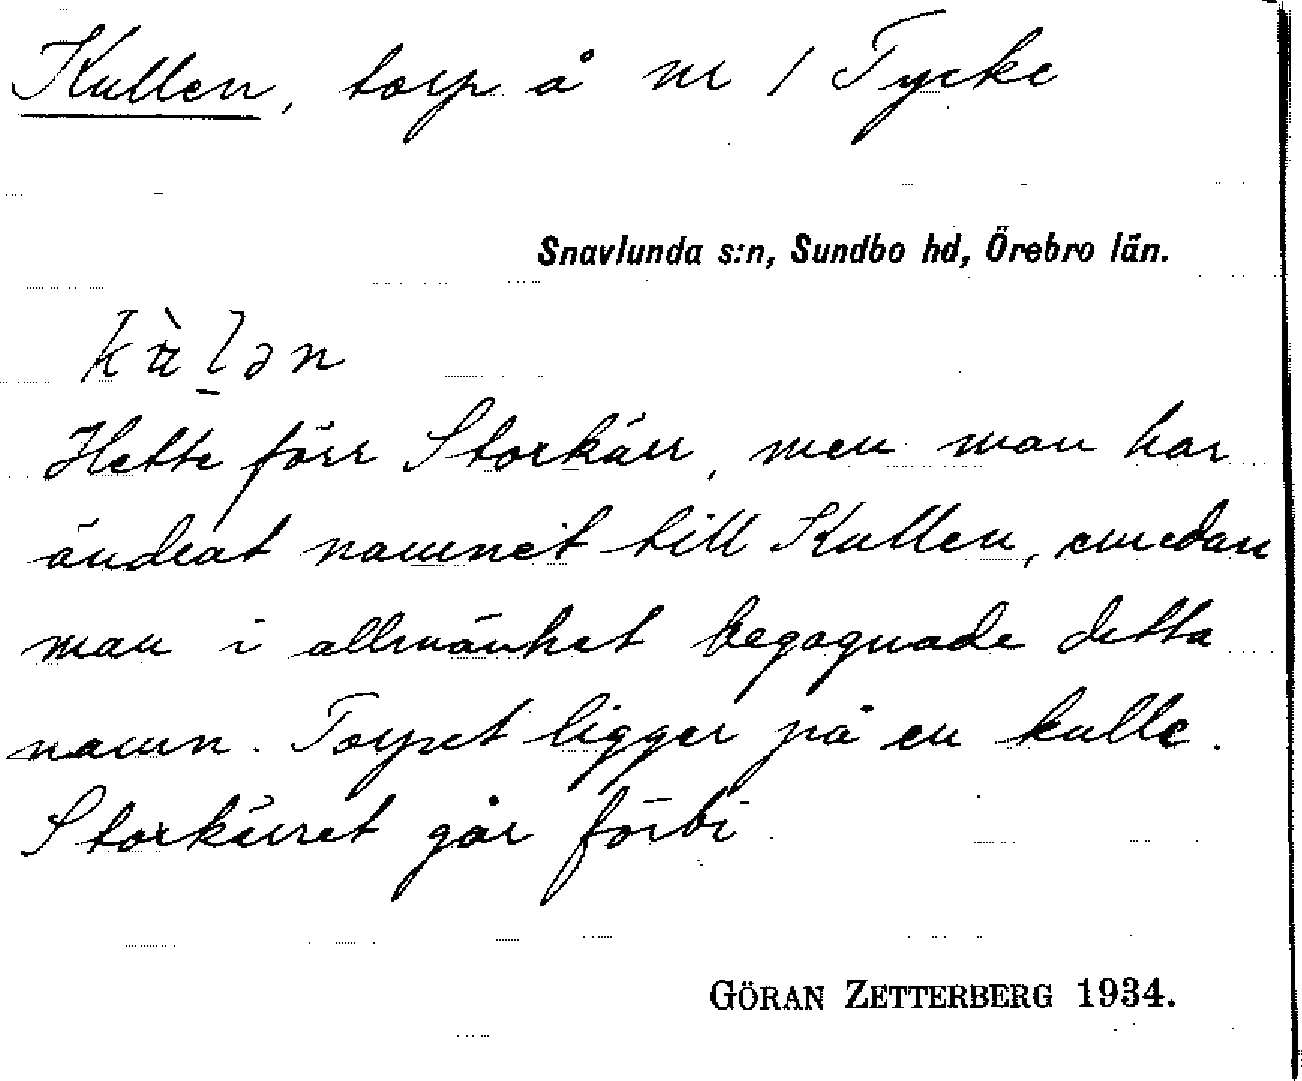 Kullen, torp å nr 1 Tycke
Snavlunda s:n, Sundbo hd, Örebro län.
kùl̠ən
Hette förr Storkärr, men man har
ändrat namnet till Kullen, emedan
man i allmänhet begagnade detta
namn. Torpet ligger på en kulle.
Storkärret går förbi.
GÖRAN ZETTERBERG 1934.